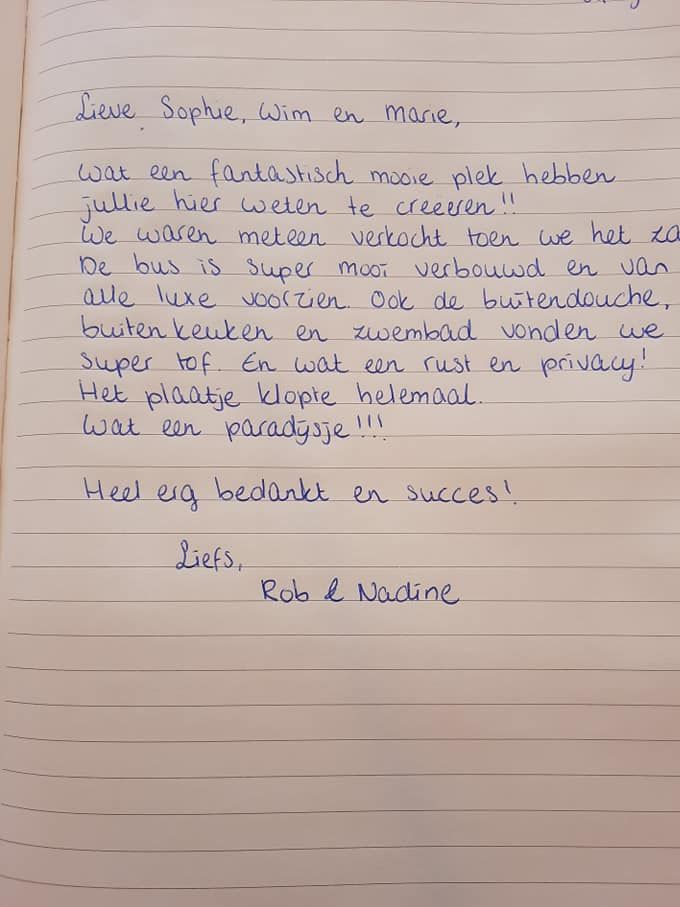 Lieve Sophie, Wim en Marie,
Wat een fantastisch mooie plek hebben
jullie hier weten te creeeren!!
We waren meteen verkocht toen we het
De bus is super mooi verbouwd en van
alle luxe voorzien. Ook de buitendouche,
buitenkeuken en zwembad vonden we
super tof. En wat een rust en privacy!
Het plaatje klopte helemaal.
Wat een paradijsje!!!
Heel erg bedankt en succes!
Liefs,
Rob & Nadine